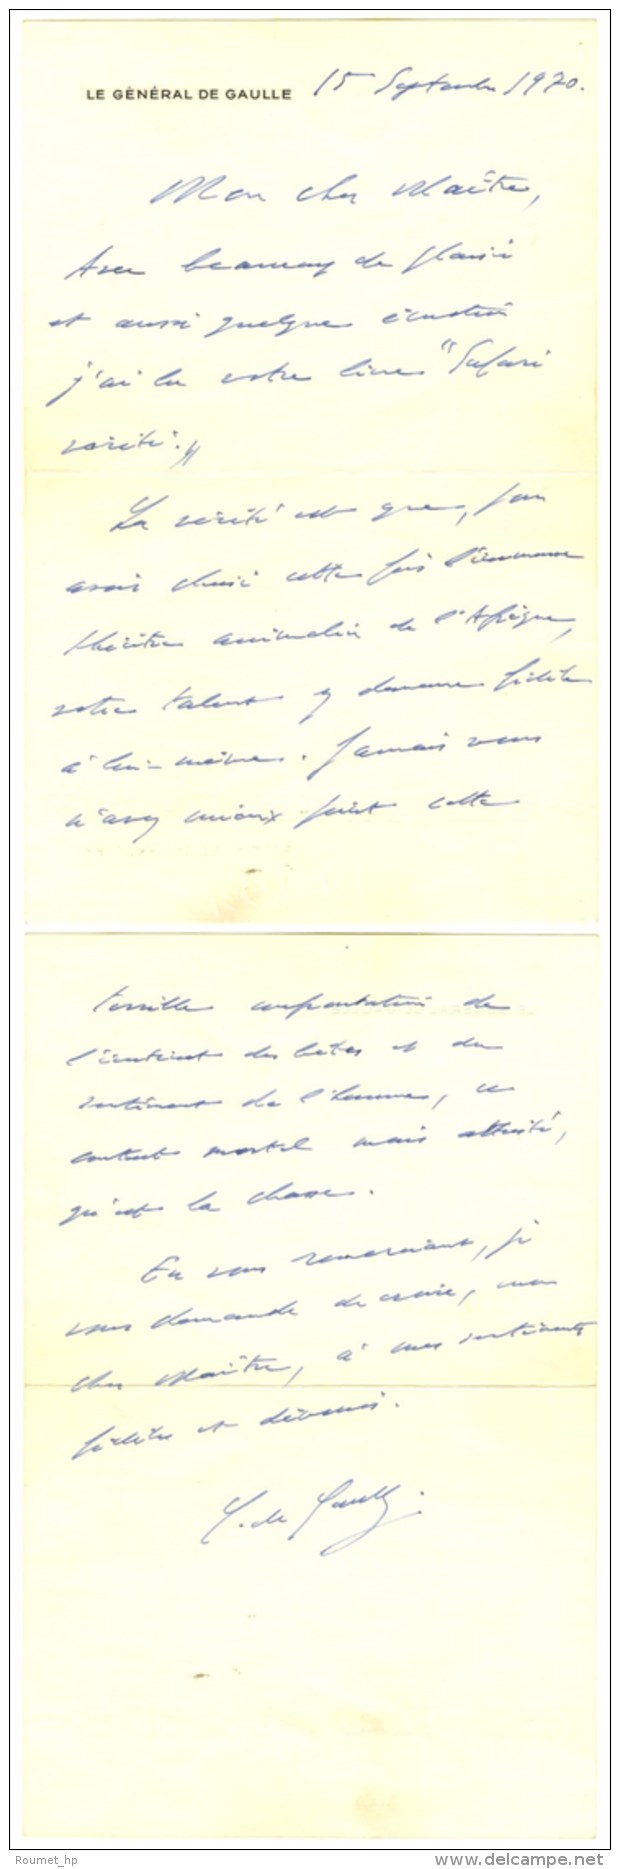 LE GÉNÉRAL DE GAULLE
15 Septembre 1970.
Mon cher Maître,
Avec beaucoup de plaisir
et aussi quelque émotion
j'ai lu votre livre "Safari
vérité."
La vérité est que, pour
avoir choisi cette fois l'immense
théâtre animalier de l'Afrique,
votre talent y demeure fidèle
à lui-même. Jamais vous
n'avez mieux peint cette
terrible confrontation de
l'instinct des bêtes et du
sentiment de l'homme, ce
contact mortel mais attristé,
qu'est la chasse.
En vous remerciant, je
vous demande de croire, mon
cher Maître, à mes sentiments
fidèles et dévoués.
C. de Gaulle.
Roumet_hp
delcampe.net